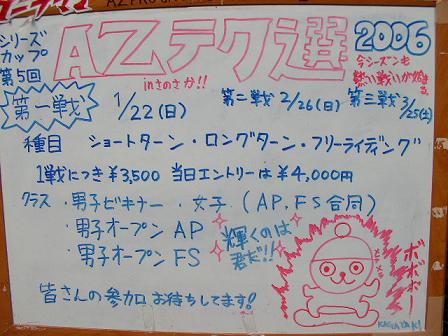 シリーズ
カップ
第5回
AZテク選 2006
inさのさか!!
今シーズンも
熱い戦いが始まる。
第一戦 1/22(日) 第二戦 2/26(日) 第三戦 3/25(土)
種目 ショートターン・ロングターン・フリーライディング
1戦につき¥3,500 当日エントリーは¥4,000円
クラス ・男子ビギナー ・女子(AP,FS合同)
・男子オープン AP
・男子オープン FS
輝くのは
君だ!!
ボボボー
皆さんの参加お待ちしてます!